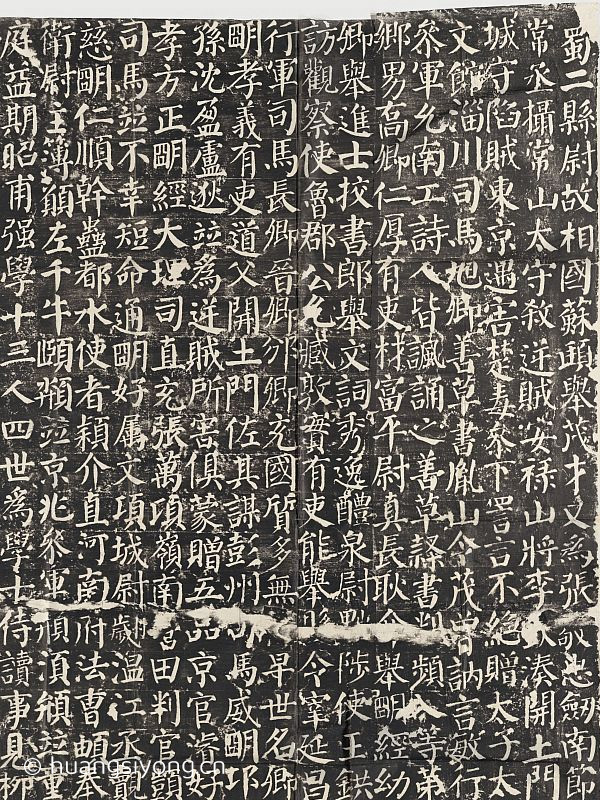 蜀二縣尉故相國蘇頲舉茂才又為張敬忠劒南節
常丞攝常山太守殺逆賊安祿山將李欽湊開土門
城守陷賊東京遇害楚毒參下詈言不絕贈太子太
文館淄川司馬旭卿善草書胤山令茂曾訥言敏行
參軍允南工詩人皆諷誦之善草隸書判頻入等第
鄉男喬卿仁厚有吏材富平尉真長耿介舉明經幼
卿舉進士挍書郎舉文詞秀逸醴泉尉黜陟使王鉷
訪觀察使魯郡公允臧敦實有吏能舉縣令宰延昌
行軍司馬長卿晉卿邠卿充國質多無祿早世名卿
明孝義有吏道父開土門佐其謀彭州司馬威明邛
孫沈盈盧逖並為逆賊所害俱蒙贈五品京官濬好
孝方正明經大理司直充張萬頃嶺南營田判官顗
司馬並不幸短命通明好属文項城尉翽溫江丞覿
慈明仁順幹蠱都水使者穎介直河南府法曹頔奉
衛尉主簿願左千牛頤頲並京兆參軍頎須頫並童
庭益期昭甫强學十三人四世為學士侍讀事見柳
© huangsiyong.cn